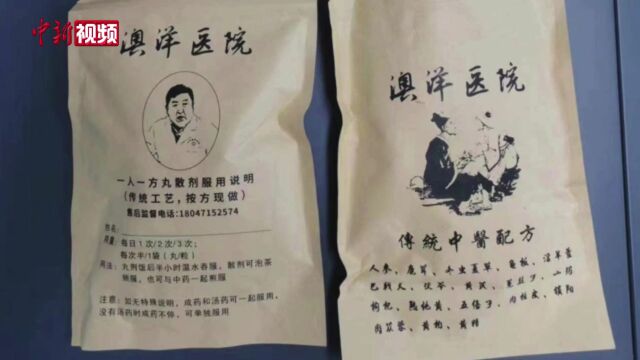 中新视频
澳洋医院
一人一方丸散剂服用说明
(传统工艺,按方现做)
售后监督电话:18047152574
姓名:
用量:每日1次/2次/3次;
每次半/1袋(丸/粒)
用法:丸剂饭后半小时温水吞服。散剂可泡茶
顿服,也可与中药一起煎服
注意:如无特殊说明,成药和汤药可一起服用,
没有汤药时成药不停,可单独服用
澳洋医院
傳統中醫配方
人参、鹿茸、冬虫夏草、龟板、淫羊藿
巴戟天、茯苓、黄芪、菟丝子、山药
枸杞、熟地黄、五倍子、肉桂皮、锁阳
肉苁蓉、黄柏、黄精